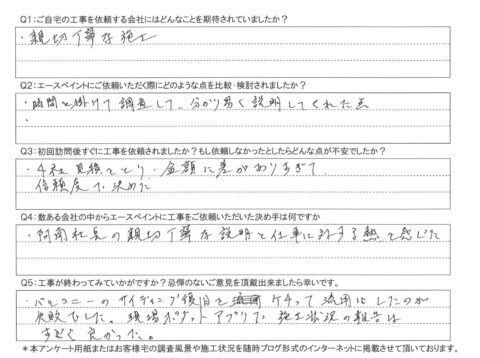 Q1：ご自宅の工事を依頼する会社にはどんなことを期待されていましたか？
・親切丁寧な施工
Q2：エースペイントにご依頼いただく際にどのような点を比較・検討されましたか？
・時間を掛けて調査して、分かり易く説明してくれた点
・
Q3：初回訪問後すぐに工事を依頼されましたか？もし依頼しなかったとしたらどんな点が不安でしたか？
・4社見積をとり、金額に差がありすぎて
信頼度で決めた
Q4：数ある会社の中からエースペイントに工事をご依頼いただいた決め手は何ですか
・阿南社長の親切丁寧な説明と仕事に対する熱を感じた
Q5：工事が終わってみていかがですか？忌憚のないご意見を頂戴出来ましたら幸いです。
・バルコニーのサイディング復旧をケチって流用にしたのが
失敗でした。現場ポケットアプリで、施工状況の報告は
すごく良かった。
＊本アンケート用紙またはお客様宅の調査風景や施工状況を随時ブログ形式のインターネットに掲載させて頂いております。